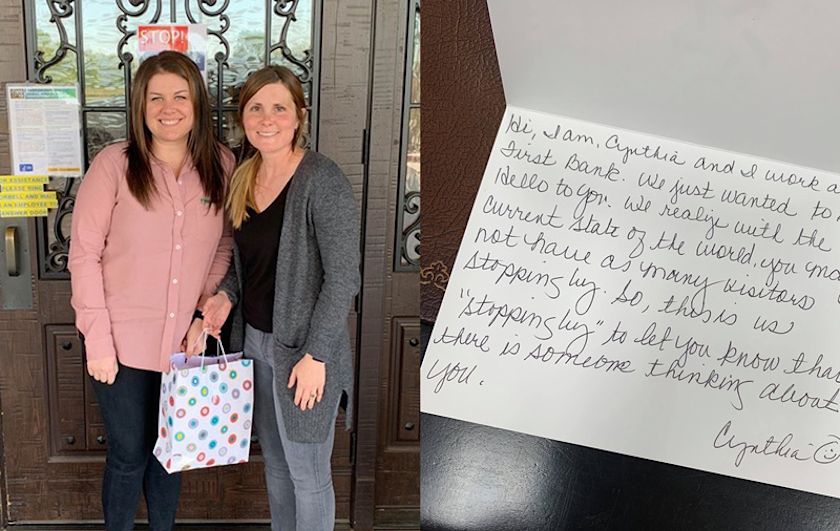 STOP!
R ASSISTANCE
PLEASE RING
ORBELL AND WAIT
AN EMPLOYEE TO
ANSWER DOOR
Hi, I am Cynthia and I work a
First Bank. We just wanted to
Hello to you. We realize with the
current state of the world, you ma
not have as many visitors
stopping by. So, this is us
"stopping by" to let you know tha
there is someone thinking about
you.
Cynthia ☺